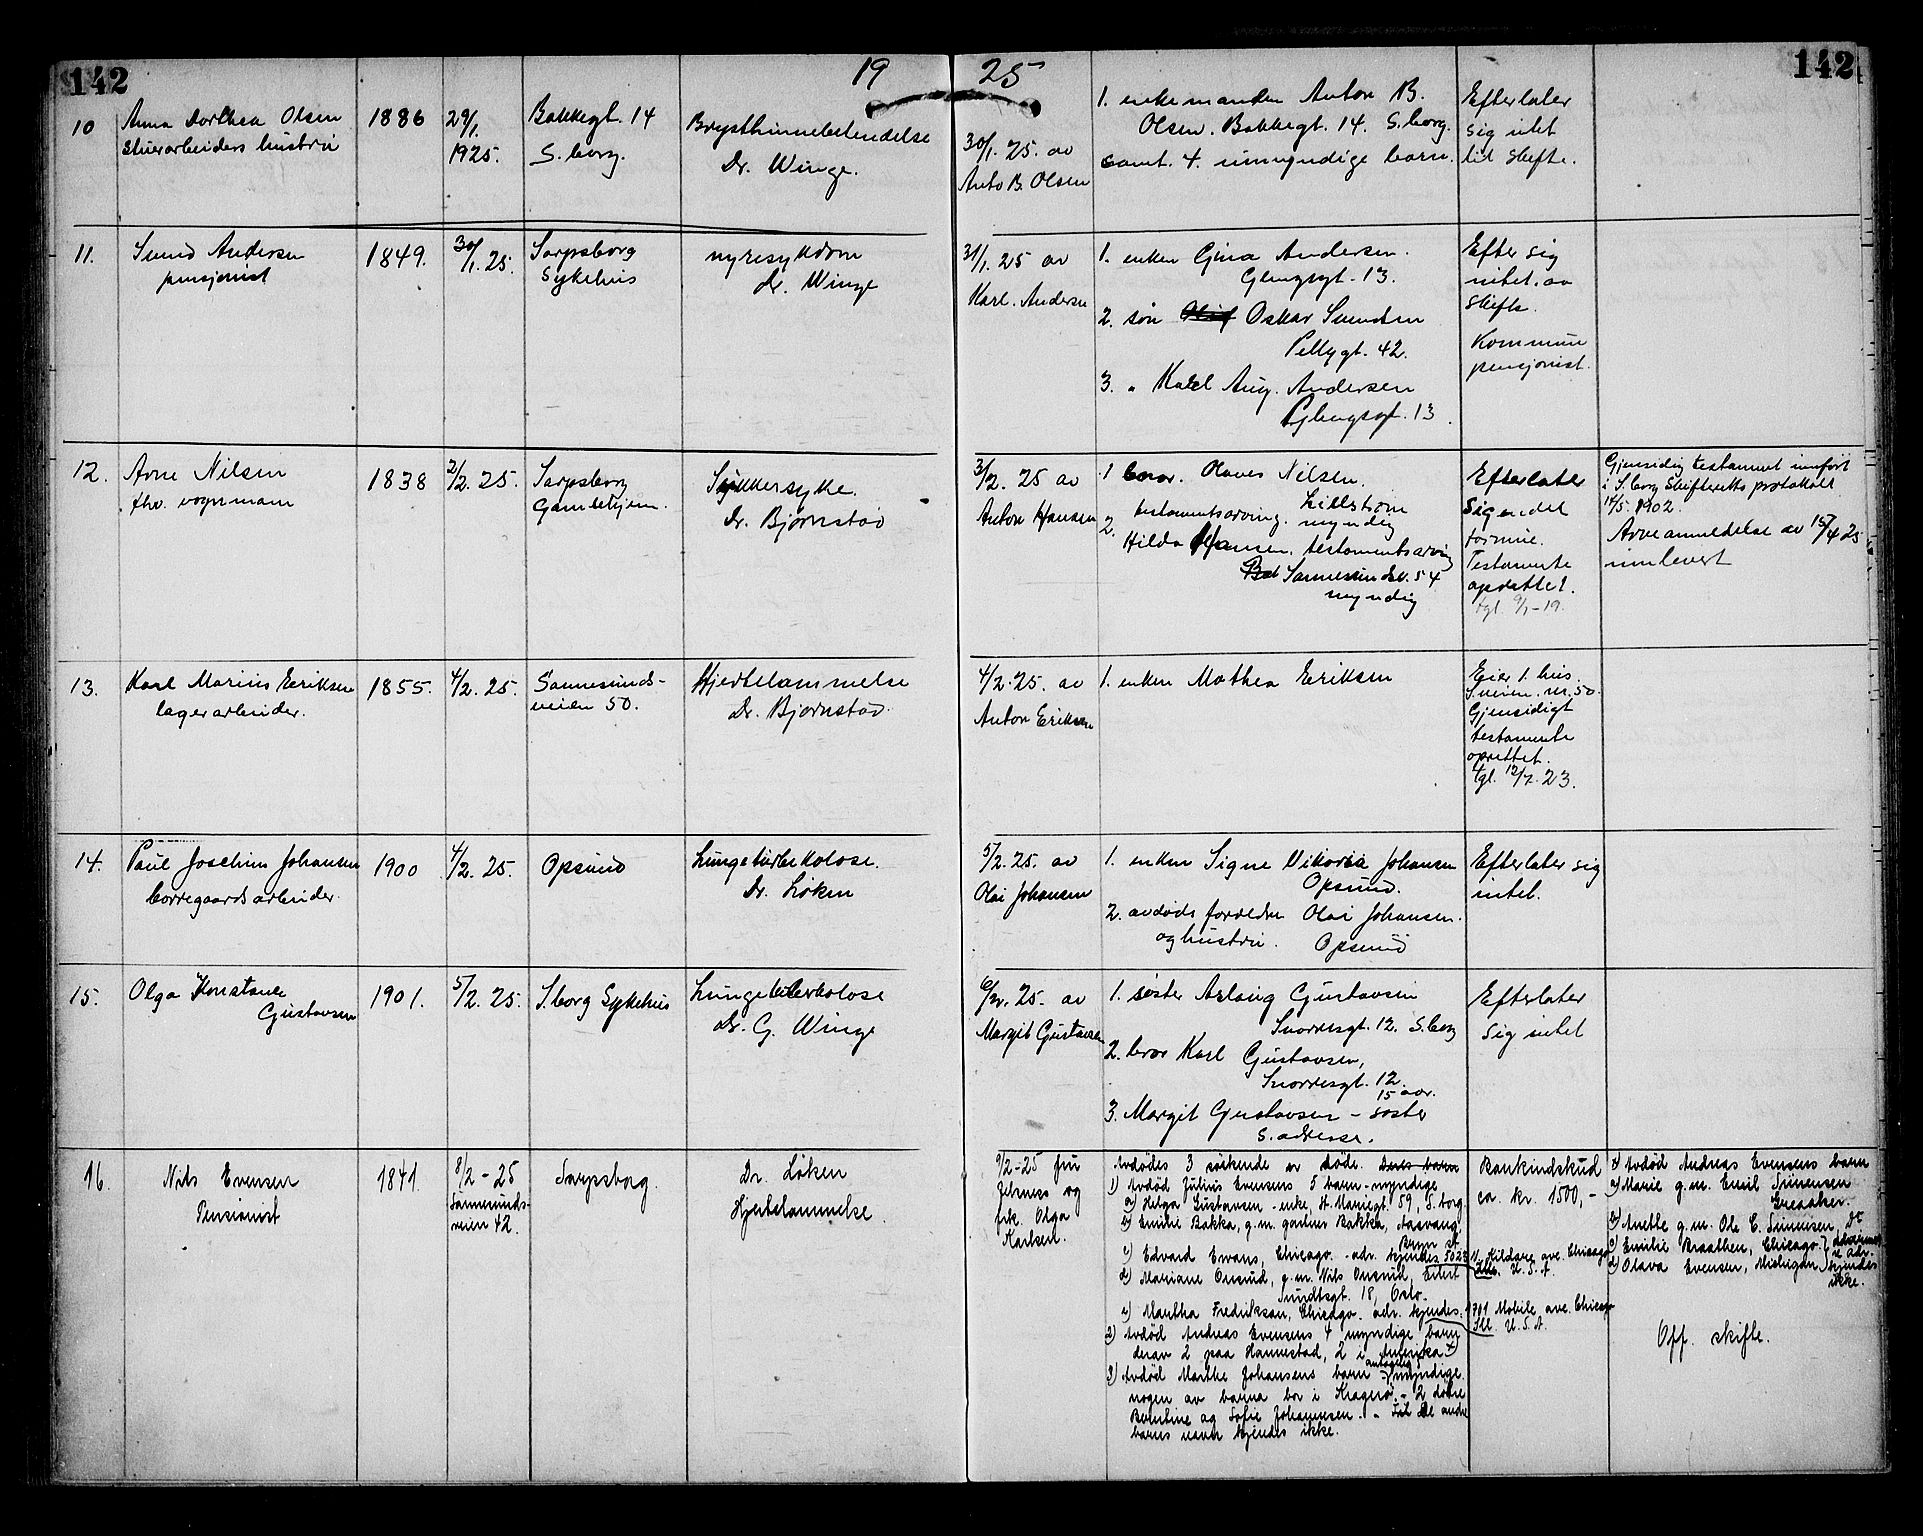 142
19 25
142
10
Anna Dorthea Olsen
stuerarbeiders hustru
1886
29/1.
1925.
Bakkegt. 14
S.borg.
Brysthinnebetendelse
Dr. Winge.
30/1. 25. av
Anto B. Olsen
1. enkemanden Anton B.
Olsen. Bakkegt. 14. S.borg.
samt. 4. umyndige barn.
Efterlater
sig intet
til skifte.
11.
Svend Andersen
pensjonist
1849.
30/1. 25.
Sarpsborg
Sykehus
nyresykdom
Dr. Winge
31/1. 25 av
Karl. Andersen
1. enken Gina Andersen.
Glengsgt. 13.
2. søn Oskar Svendsen
Pellygt. 42.
3. " Karl Aug. Andersen
Glengsgt. 13.
Efter sig
intet. av
skifte.
Kommune
pensjonist.
12.
Arne Nilsen
fhv. vognmann
1838
2/2. 25.
Sarpsborg
Gamlehjem.
Sukkersyke.
Dr. Bjørnstad
3/2. 25 av
Anton Hansen
1 bror. Olaves Nilsen.
Lillstrøm
testamentsarving. myndig
2.
Hilda Hansen. testamentsarving
Sannesundsv. 54
myndig
Efterlater
sig endel
formue.
Testamente
oprettet.
tgl. 9/1-19.
Gjensidig testament innført
i S.borg Skifteretts protokoll
14/5. 1902.
Arveanmeldelse av 15/4 25
innlevert
13.
Karl Marius Eriksen
lagerarbeider.
1855.
4/2. 25.
Sannesunds-
veien 50.
Hjertelammelse
Dr. Bjørnstad.
4/2. 25. av
Anton Eriksen
1. enken Mathea Eriksen
Eier 1. hus.
S.veien. nr. 50.
Gjensidigt
testamente
oprettet.
tgl. 12/7. 23.
14.
Paul Joachim Johansen
borregaards arbeider.
1900
4/2. 25.
Opsund
Lungetuberkolose.
Dr. Løken
5/2. 25. av
Olai Johansen
1. enken Signe Viktoria Johansen
Opsund.
2. avdøds foreldre Olai Johansen.
og hustru. Opsund
Efterlater sig
intet.
15.
Olga Konstanse
Gustavsen
1901.
5/2. 25.
S.borg Sykehus
Lungetuberkolose
Dr. G. Winge
6/2. 25. av
Margit Gustavsen
1. søster Aslaug Gustavsen
Snorresgt. 12. S.borg
2. bror Karl Gustavsen,
Snorresgt. 12.
15 aar.
3. Margit Gustavsen - søster
s. adresse.
Efterlater
sig intet
16.
Nils Evensen
Pensionist
1841.
8/2 - 25
Sannesunds-
veien 42.
Sarpsborg.
Dr. Løken
Hjertelammelse.
9/2-25 fru
Jelsness og
frk. Olga
Karlsen.
Avdødes 3 søskende er døde. Deres barn
1) Avdød Julius Evensens 5 barn - myndige
a) Helga Gustavsen - enke, St. Mariegt. 59, S.borg.
b) Emilie Bakka, g.m. gartner Bakka, Aasvang
Bryn st.
c) Edvard Evans, Chicago. - adr. kjendes 5023 N. Kildare ave. Chicago
Ills. U.S.A.
d) Mariane Onsrud, g.m. Nils Onsrud, Eilert
Sundtsgt. 18, Oslo.
e) Martha Fredriksen, Chicago. adr. kjendes. 1701 Mobile ave. Chicago
Ill. U.S.A.
2) Avdød Andreas Evensens 4 myndige barn
derav 2 paa Hannestad, 2 i Amerika x)
3) Avdød Marthe Johansens barn antagelig myndige.
nogen av barna bor i Kragerø. - 2 døtre
Berntine og Sofie Johannesen. - De andre
barns navn kjendes ikke.
Bankindskud
ca. kr. 1500,-
x) Avdød Andreas Evensens barn
a) Marie g.m. Emil Simensen
Greaaker.
b) Anette g.m. Ole C. Simensen,
c) Emilie Braathen, Chicago.
d) Olava Evensen, Michigan
adr.
kjendes
ikke.
Off. skifte.